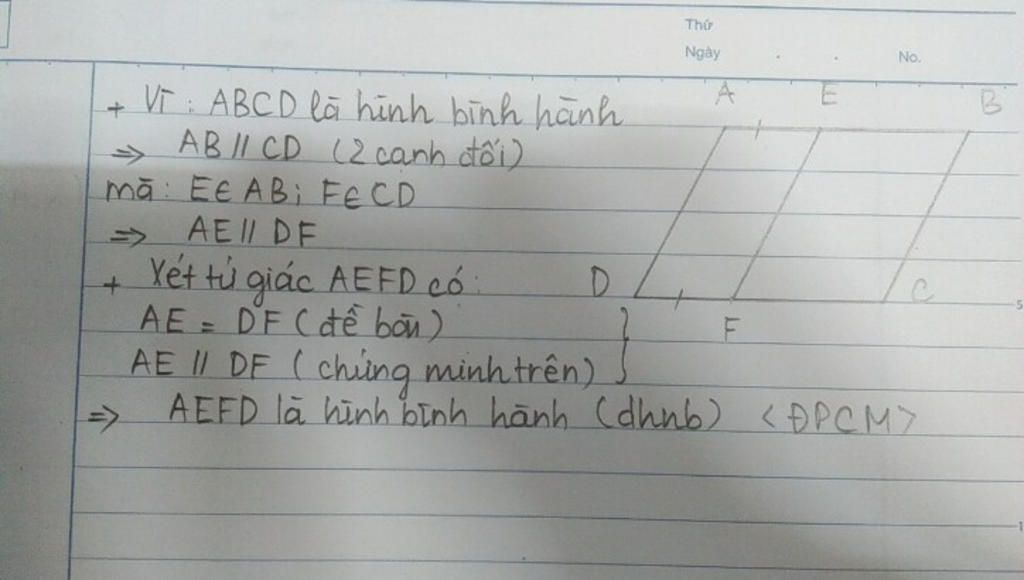 Thứ
Ngày . . No.
A E B
+ Vì : ABCD là hình bình hành
=> AB // CD (2 cạnh đối)
mà : E∈AB; F∈CD
=> AE // DF
+ Xét tứ giác AEFD có :
D C
5
AE = DF (đề bài)
F
AE // DF (chứng minh trên)
=> AEFD là hình bình hành (dhnb) <ĐPCM>
1